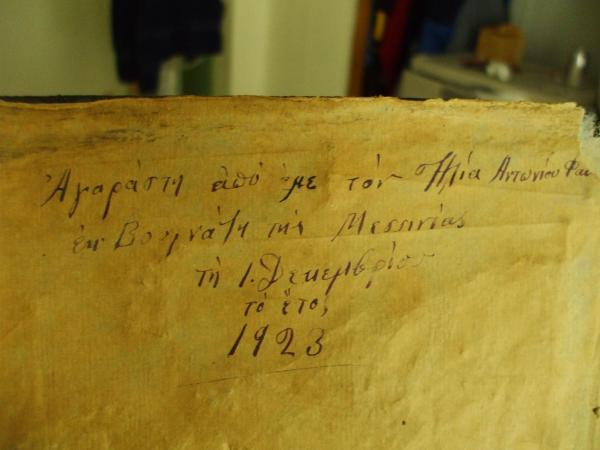 Ἀγοράστη ἀπό ἐμε τόν Ἠλία Ἀντωνίου
ἐκ της Μεσσηνίας
τη 1. Δεκεμβρίου
το ἔτος
1923